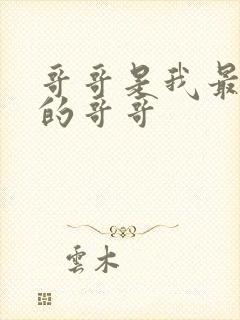 哥哥是我最
的哥哥
雲木